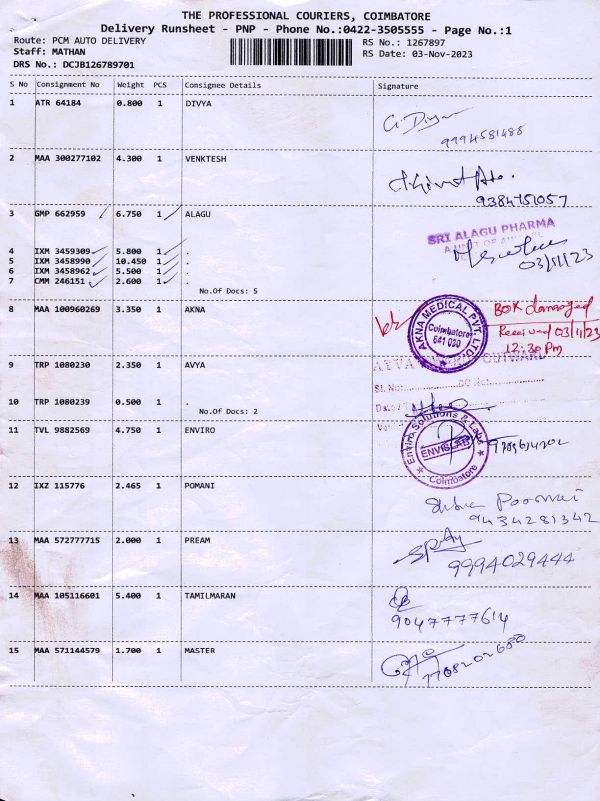 THE PROFESSIONAL COURIERS, COIMBATORE
Delivery Runsheet - PNP - Phone No.:0422-3505555 - Page No.:1
Route: PCM AUTO DELIVERY
Staff: MATHAN
DRS No.: DCJB126789701
RS No.: 1267897
RS Date: 03-Nov-2023
S No Consignment No Weight PCS Consignee Details Signature
1 ATR 64184 0.800 1 DIVYA
9994581488
2 MAA 300277102 4.300 1 VENKTESH
9384751057
3 GMP 662959 6.750 1 ALAGU
SRI ALAGU PHARMA
03/11/23
4 IXM 3459309 5.800 1 .
5 IXM 3458990 10.450 1 .
6 IXM 3458962 5.500 1 .
7 CMM 246151 2.600 1 .
No.Of Docs: 5
8 MAA 100960269 3.350 1 AKNA
AKNA MEDICAL PVT. LTD.
Coimbatore
641 020
BOX damaged
Received 03/11/23
12:30 Pm
9 TRP 1080230 2.350 1 AVYA
OUTWARD
Sl. No:
10 TRP 1080239 0.500 1 .
No.Of Docs: 2
11 TVL 9882569 4.750 1 ENVIRO
Enviro Solutions & Labs
ENVISLAB
Coimbatore
12 IXZ 115776 2.465 1 POMANI
9434281342
13 MAA 572777715 2.000 1 PREAM
9994029444
14 MAA 105116601 5.400 1 TAMILMARAN
9047777614
15 MAA 571144579 1.700 1 MASTER
7708202680